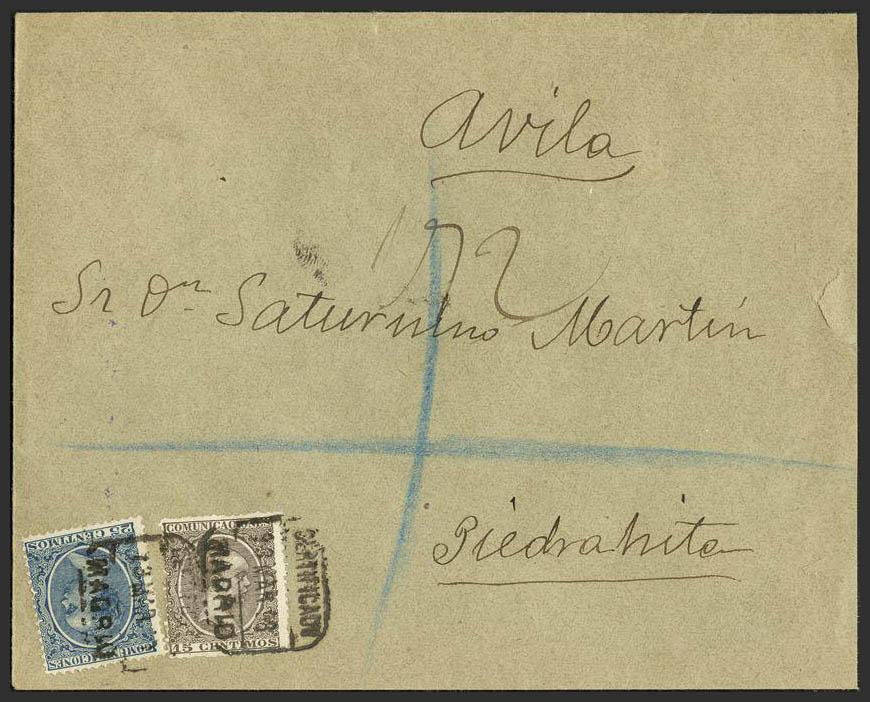 Avila
Sr Dn Saturnino Martín
Piedrahita
25 CENTIMOS
COMUNICACIONES
MADRID
COMUNICACIONES
15 CENTIMOS
MADRID
CERTIFICADO